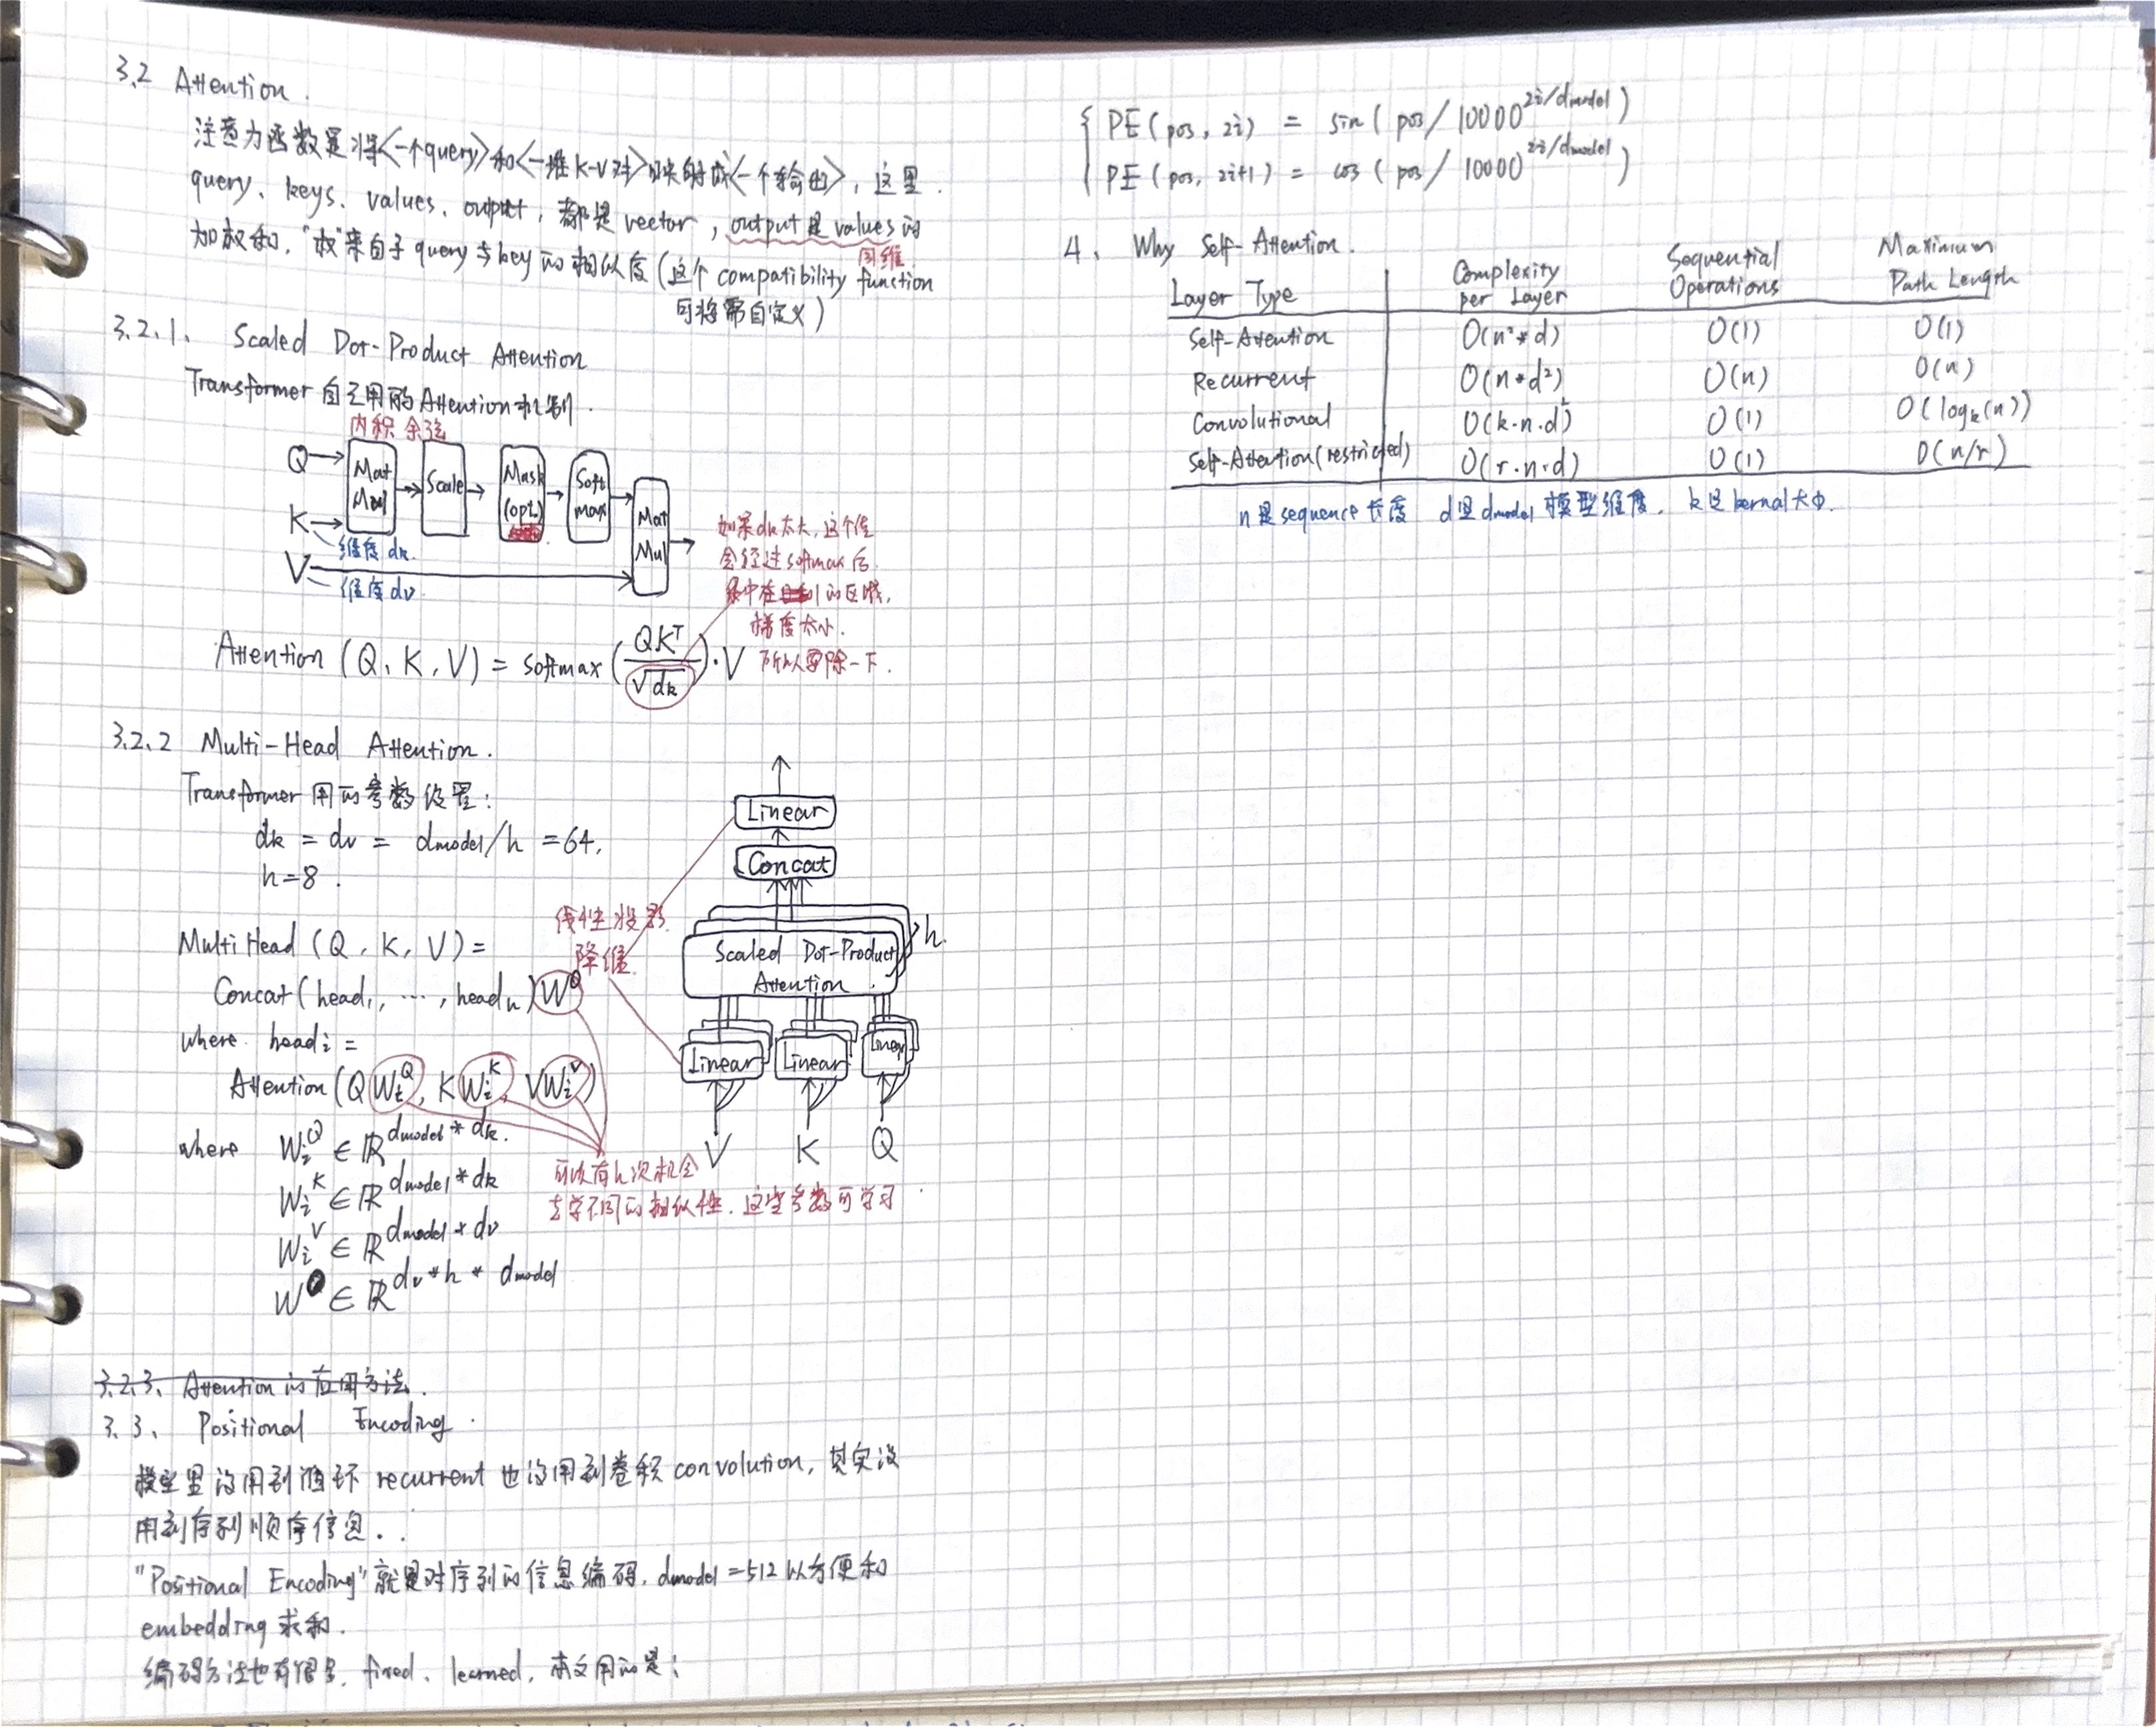 3.2 Attention.
注意力函数是将<一个query>和<一堆K-V对>映射成<一个输出>, 这里
query、keys、values、output, 都是vector, output是values的
加权和, "权"来自于query与key的相似度(这个compatibility function
同维
自定义)
3.2.1. Scaled Dot-Product Attention
Transformer自己用的Attention机制.
内积 余弦
Q
K
V
Mat Mul
Scale
Mask (opt.)
Soft max
Mat Mul
维度dk
维度dv
如果dk太大, 这个值
会经过softmax后
集中在 1的区域,
梯度太小.
所以要除一下.
Attention (Q, K, V) = softmax (QKᵀ/√dk)·V
3.2.2 Multi-Head Attention.
Transformer用的参数设置:
dk = dv = dmodel/h = 64,
h=8.
MultiHead (Q, K, V) =
Concat(head₁, ..., headₕ)W^O
where headi =
Attention(QWi^Q, KWi^K, VWi^V)
where Wi^Q ∈ ℝ^dmodel*dk.
Wi^K ∈ ℝ^dmodel*dk
Wi^V ∈ ℝ^dmodel*dv
W^O ∈ ℝ^dv*h*dmodel
线性投影
降维
可以有h次机会
去学不同的相似性. 这些参数可学习
Linear
Concat
Scaled Dot-Product
Attention
h.
Linear
Linear
Linear
V
K
Q
3.2.3、Attention的应用方法.
3.3、Positional Encoding.
模型里没用到循环recurrent也没用到卷积convolution, 其实没
用到序列顺序信息.
"Positional Encoding"就是对序列的信息编码, dmodel=512以方便和
embedding求和.
编码方法也有很多, fixed、learned, 本文用的是:
{ PE(pos, 2i) = sin(pos/10000^2i/dmodel)
PE(pos, 2i+1) = cos(pos/10000^2i/dmodel)
4、Why Self-Attention.
Layer Type | Complexity per Layer Sequential Operations Maximum Path Length
Self-Attention O(n²*d) O(1) O(1)
Recurrent O(n*d²) O(n) O(n)
Convolutional O(k·n·d²) O(1) O(logk(n))
Self-Attention(restricted) O(r·n·d) O(1) O(n/r)
n是sequence长度 d是dmodel模型维度, k是kernal大小.